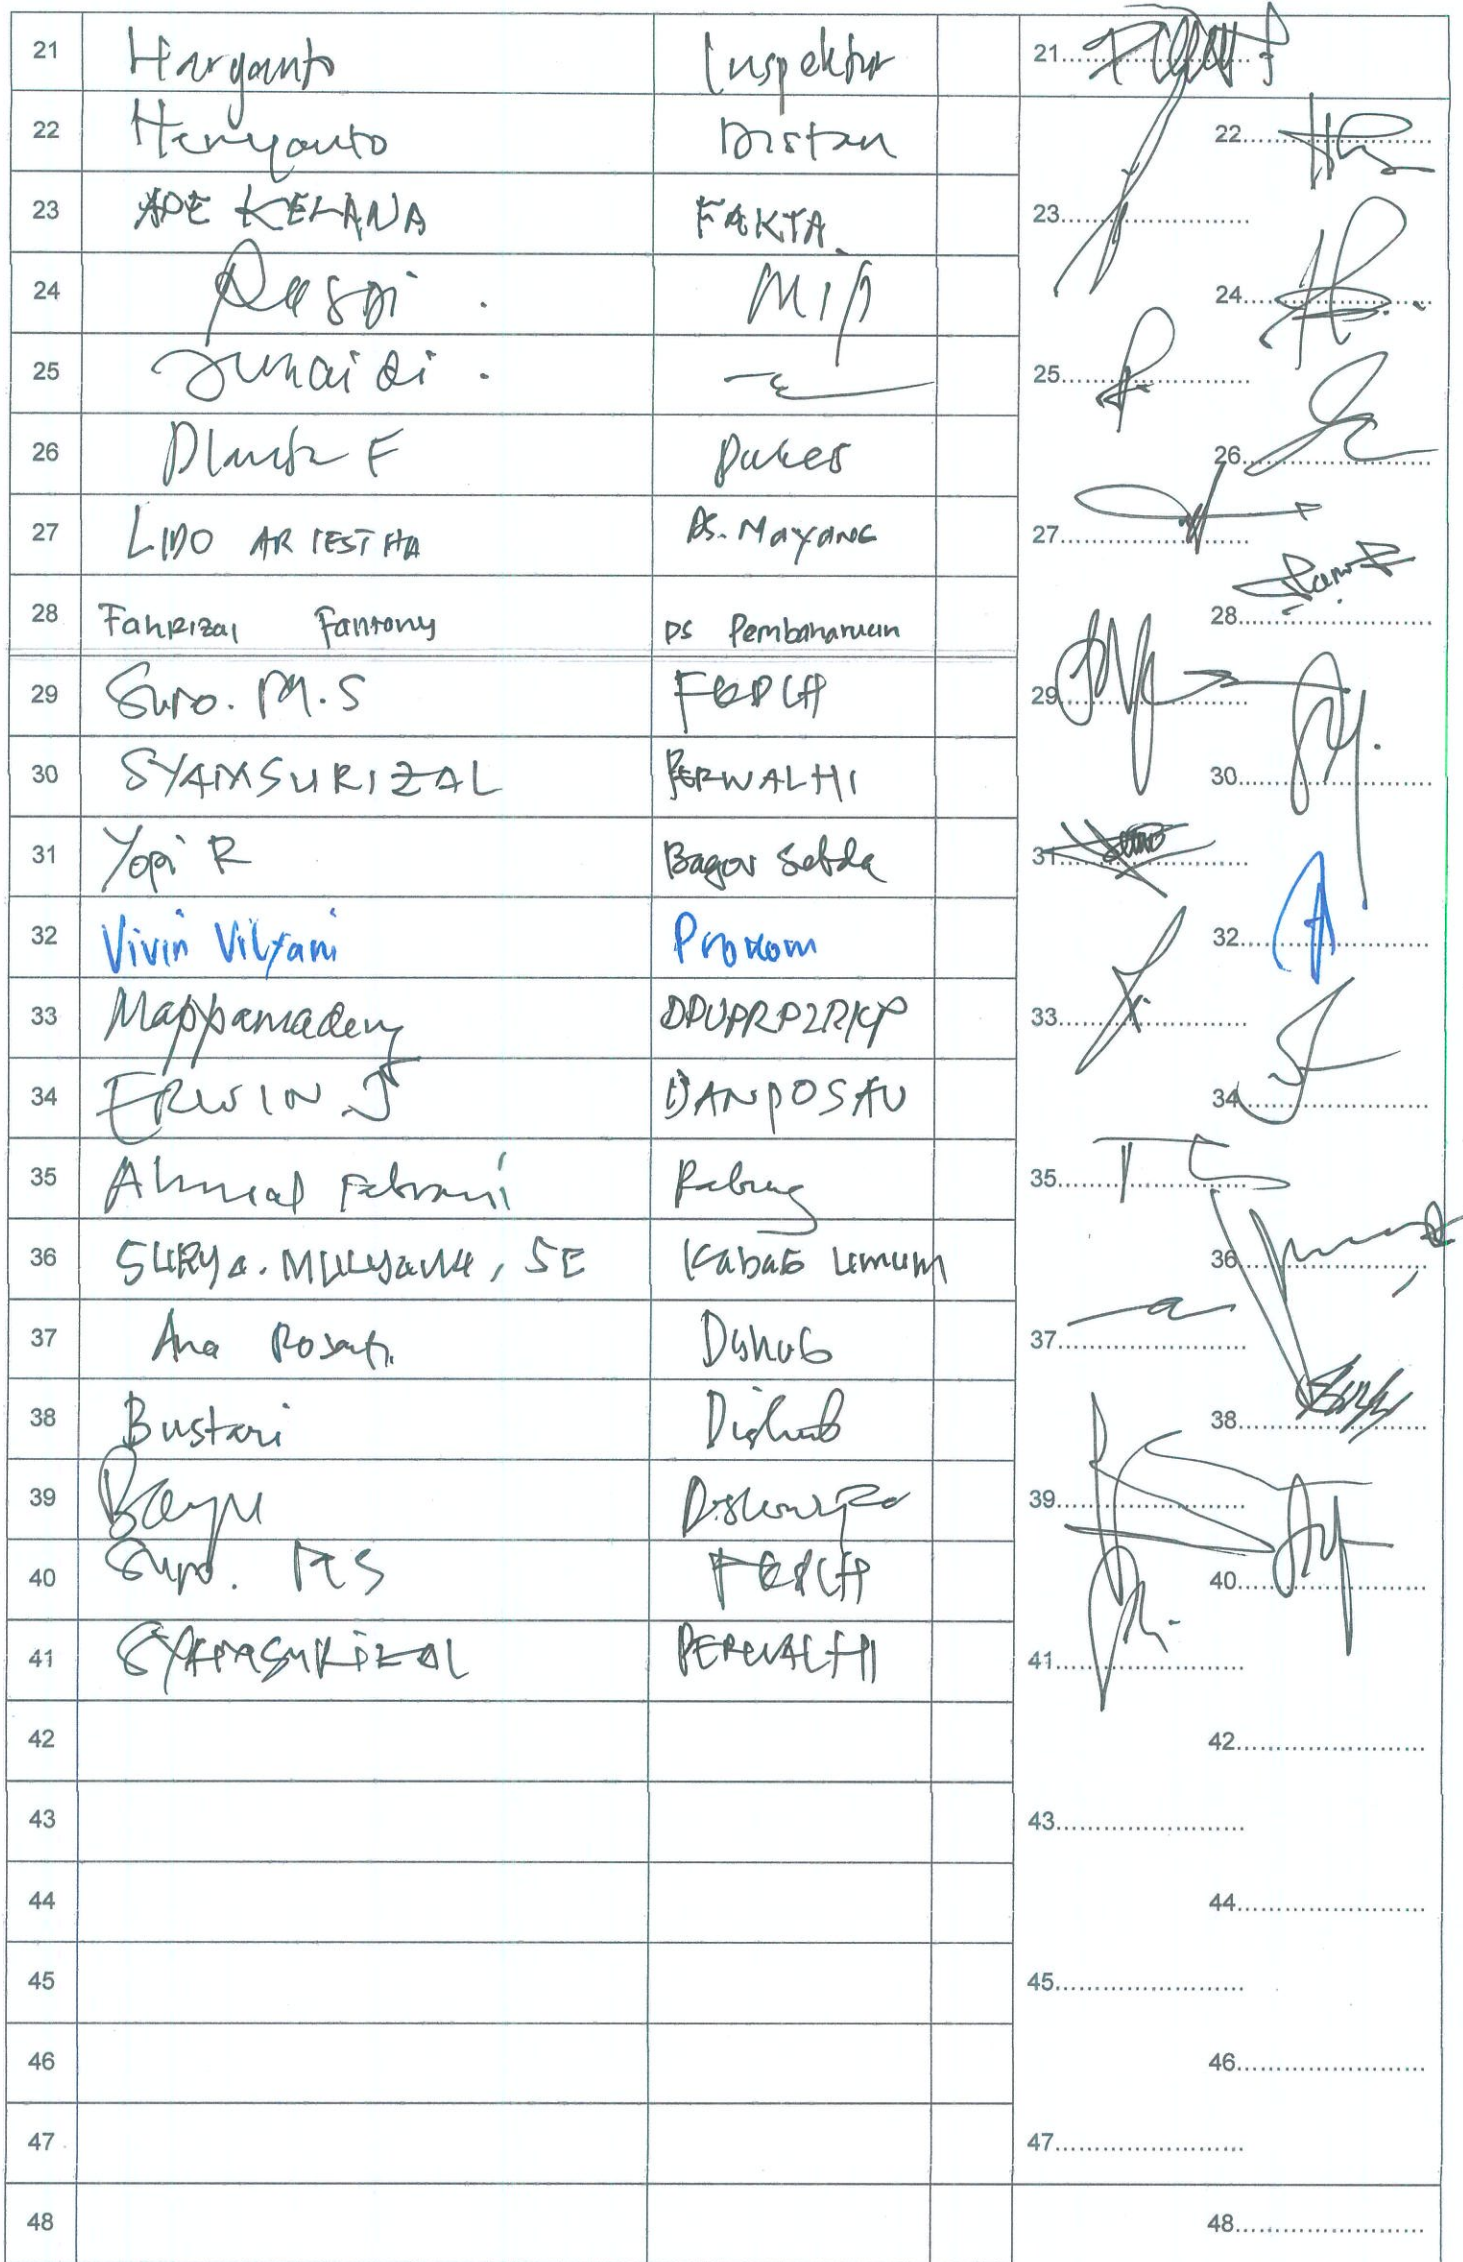 21 Haryanto Inspektur 21
22 Heryanto Distan 22
23 ADE KELANA FAKTA 23
24 24
25 Junaidi 25
26 F 26
27 LIDO ARIESTHA Ds. Mayang 27
28 Fahrizal Fantony Ds Pembaharuan 28
29 Suro. M.S 29
30 SYAMSURIZAL PERWALHI 30
31 Yopi R Bagor Setda 31
32 Vivin Vilyani Prokom 32
33 Mappamadeng DPUPRP2RKP 33
34 ERWIN .J DANPOSAU 34
35 Ahmad 35
36 SURYA. MULYANA, SE Kabag Umum 36
37 Ana Rosanti Dishub 37
38 Bustari Dishub 38
39 Bayu 39
40 Suro. M S 40
41 SYAMSURIZAL PERWALHI 41
42 42
43 43
44 44
45 45
46 46
47 47
48 48